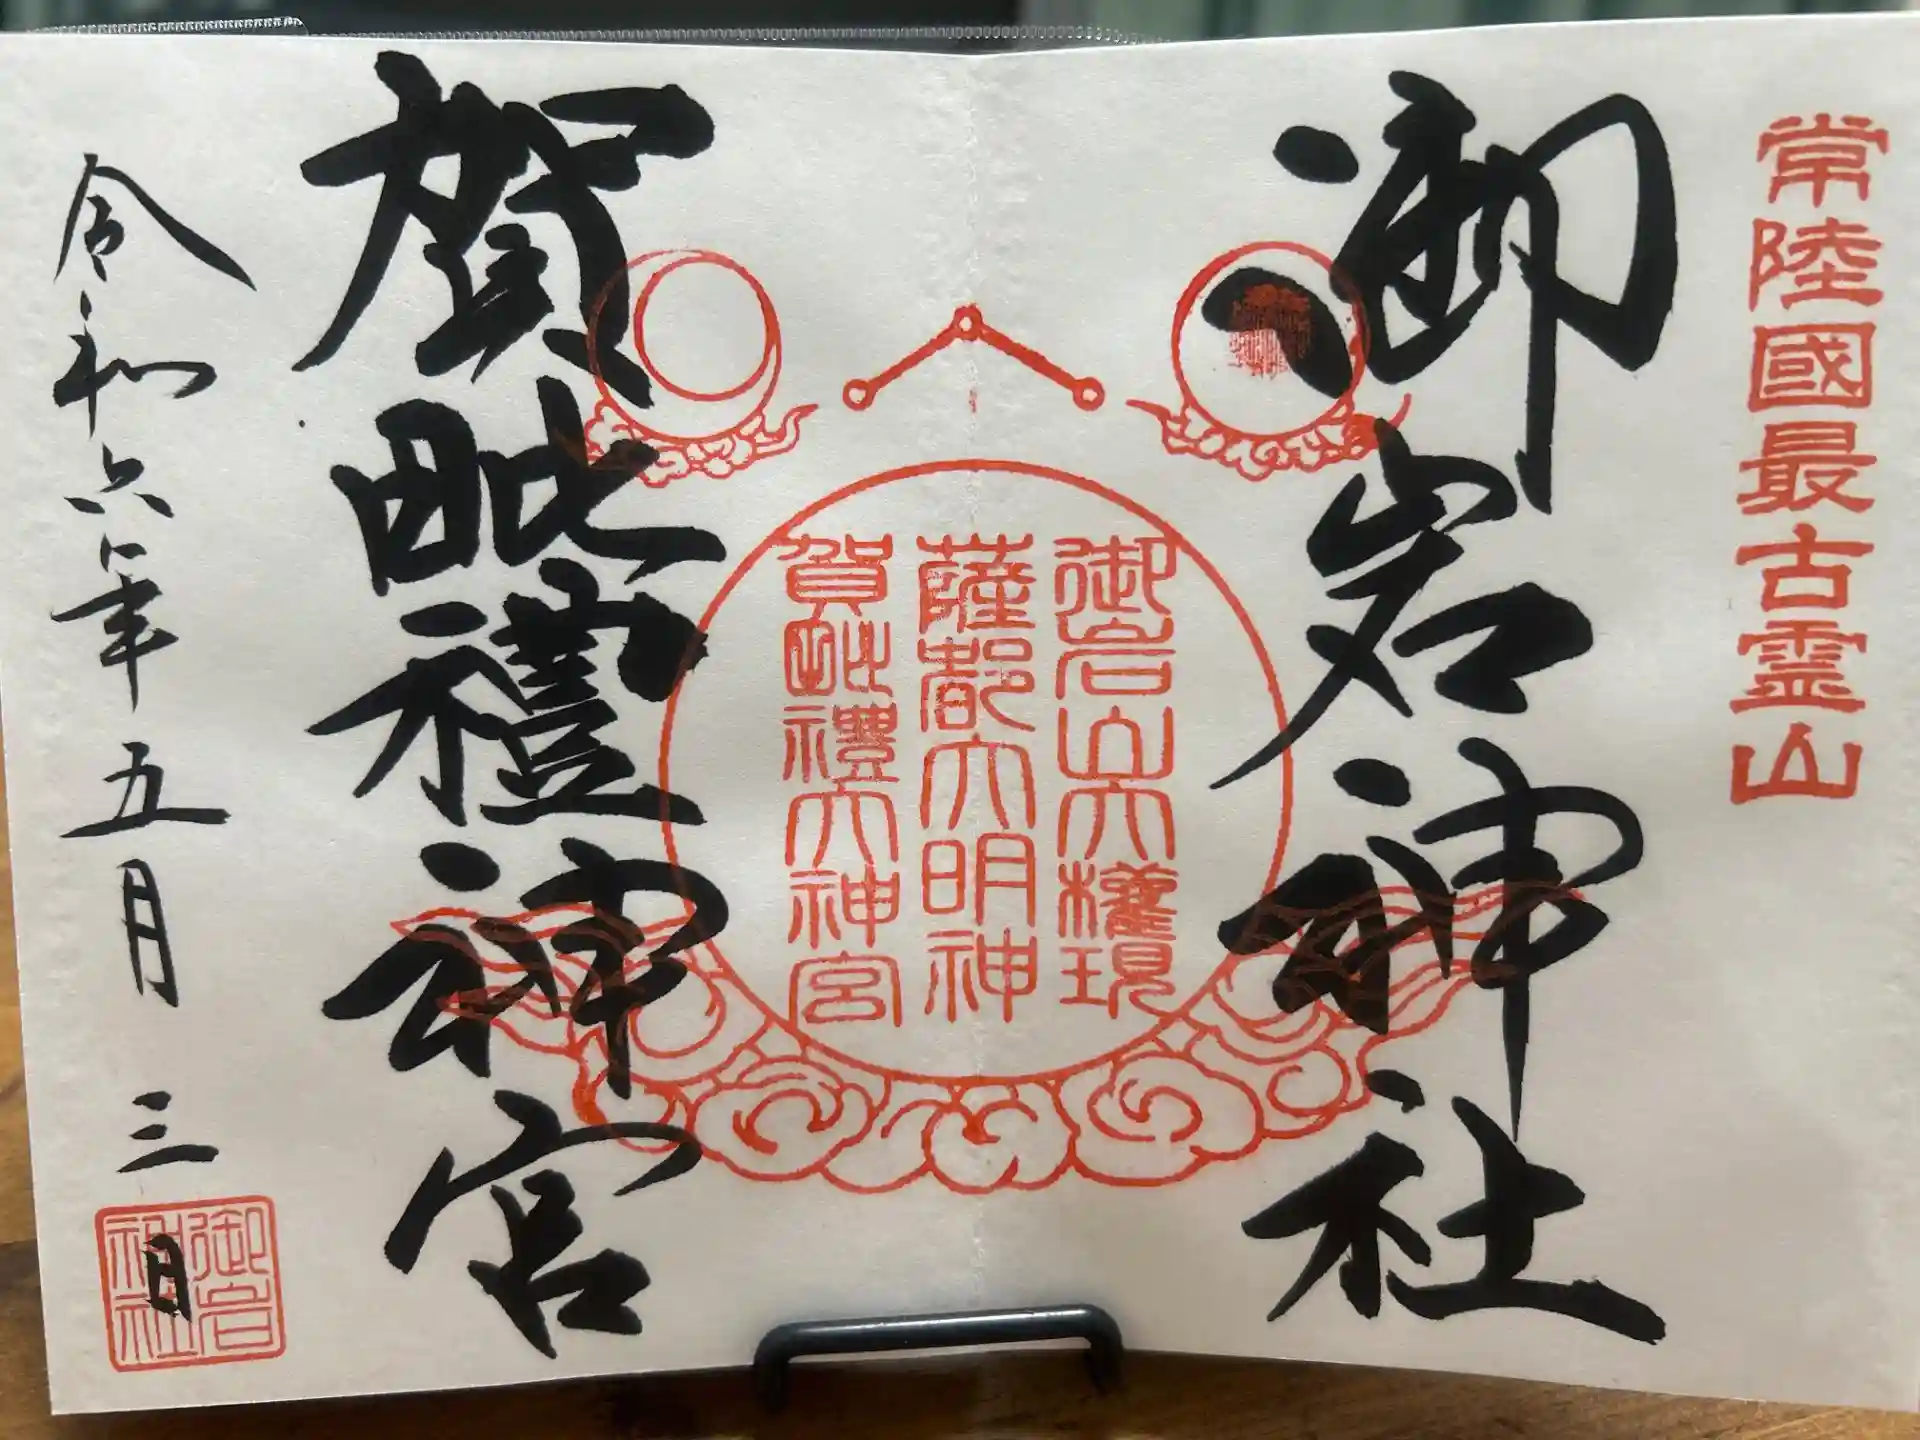 常陸國最古霊山
御岩神社
御岩山大権現
薩都大明神
賀毗禮大神宮
賀毗禮神宮
令和六年五月三日
御岩
神社